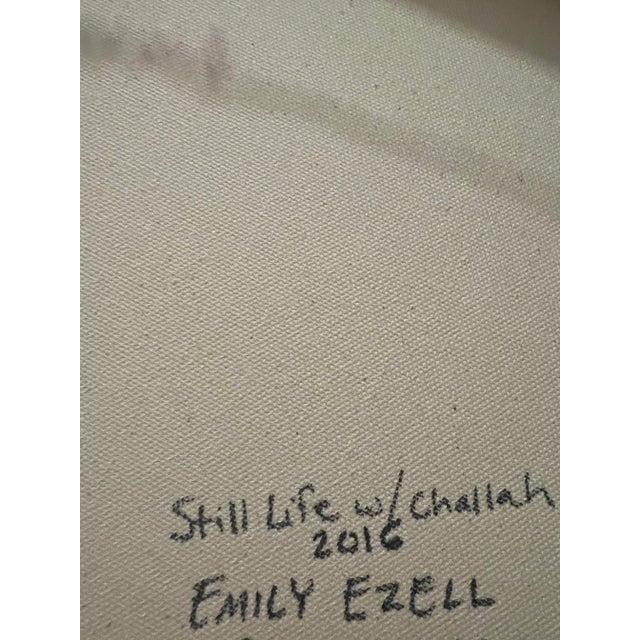 Still Life w/ Challah
2016
EMILY EZELL